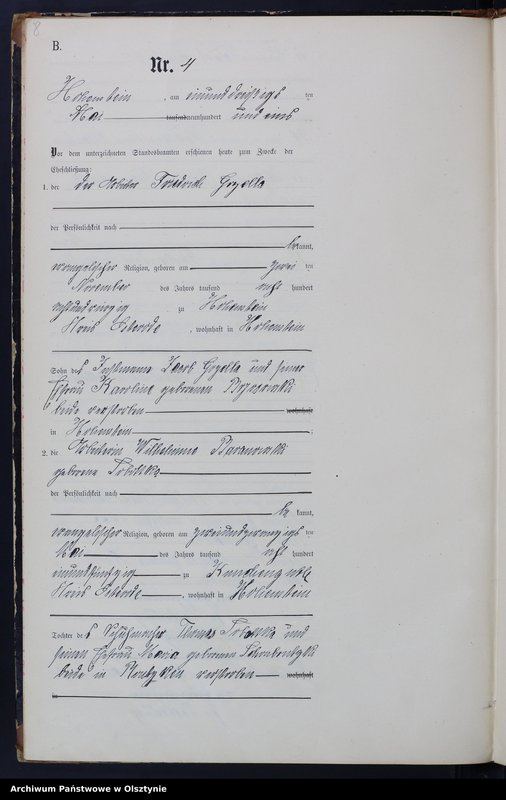 8
B.
Nr. 4
Hohenstein, am einunddreißigsten
Mai tausendneunhundert und eins
Vor dem unterzeichneten Standesbeamten erschienen heute zum Zwecke der
Eheschließung:
1. der der Arbeiter Friedrich
der Persönlichkeit nach
bekannt,
evangelischer Religion, geboren am zwei ten
November des Jahres tausend acht hundert
zu Hohenstein
Kreis Osterode, wohnhaft in Hohenstein
Sohn des Instmanns und seiner
Ehefrau Karoline geborenen
beide verstorben wohnhaft
in Hohenstein
2. die Arbeiterin Wilhelmine Baranowski
geborene
der Persönlichkeit nach
be kannt,
evangelischer Religion, geboren am zweiundzwanzigsten
Mai des Jahres tausend acht hundert
einundfünfzig zu
Kreis Osterode, wohnhaft in Hohenstein
Tochter des Thomas und
seiner Ehefrau geborenen
beide in verstorben wohnhaft
in
Archiwum Państwowe w Olsztynie